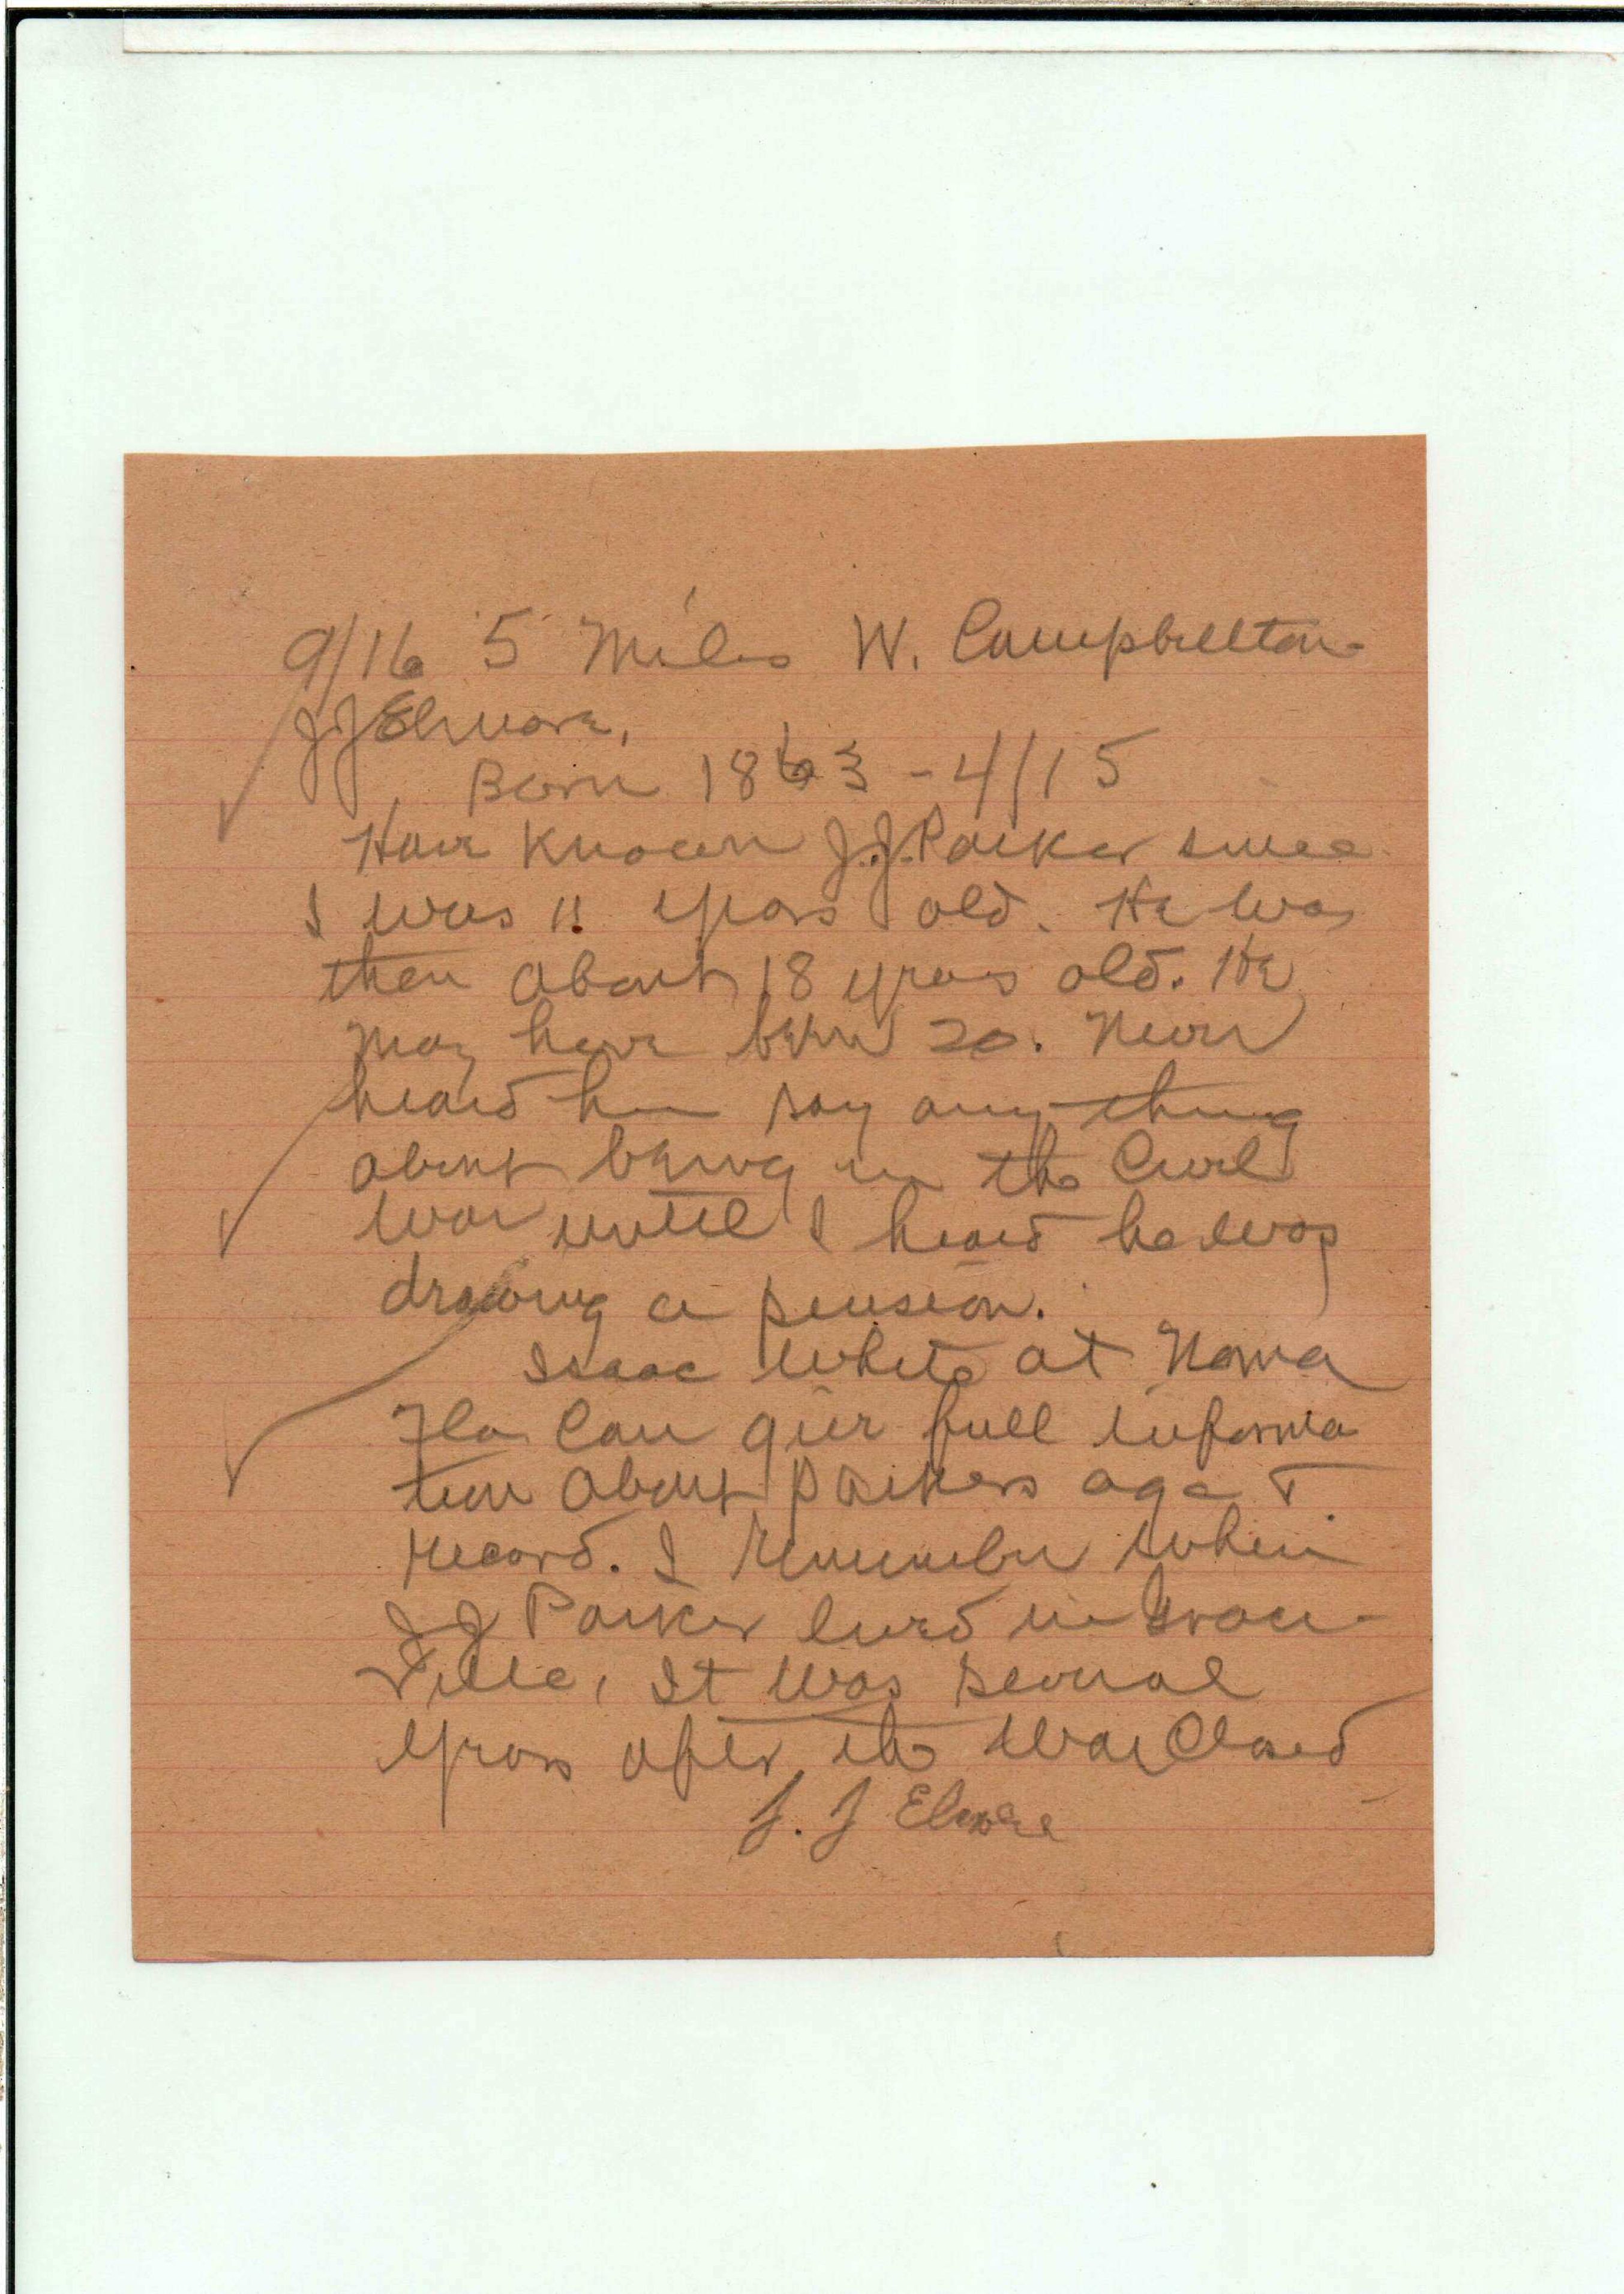 9/16 5 Miles W. Campbellton
J J Elmore,
Born 1863 - 4/15
Have known J.J. Parker since
I was 11 years old. He was
then about 18 years old. He
may have been 20. Never
heard him say any thing
about being in the Civil
War until I heard he was
drawing a pension.
Isaac White at Noma
Fla Can give full informa
tion about Parkers age &
record. I remember when
J J Parker lived in Grace-
ville, It was several
years after the War Closed
J. J Elmore